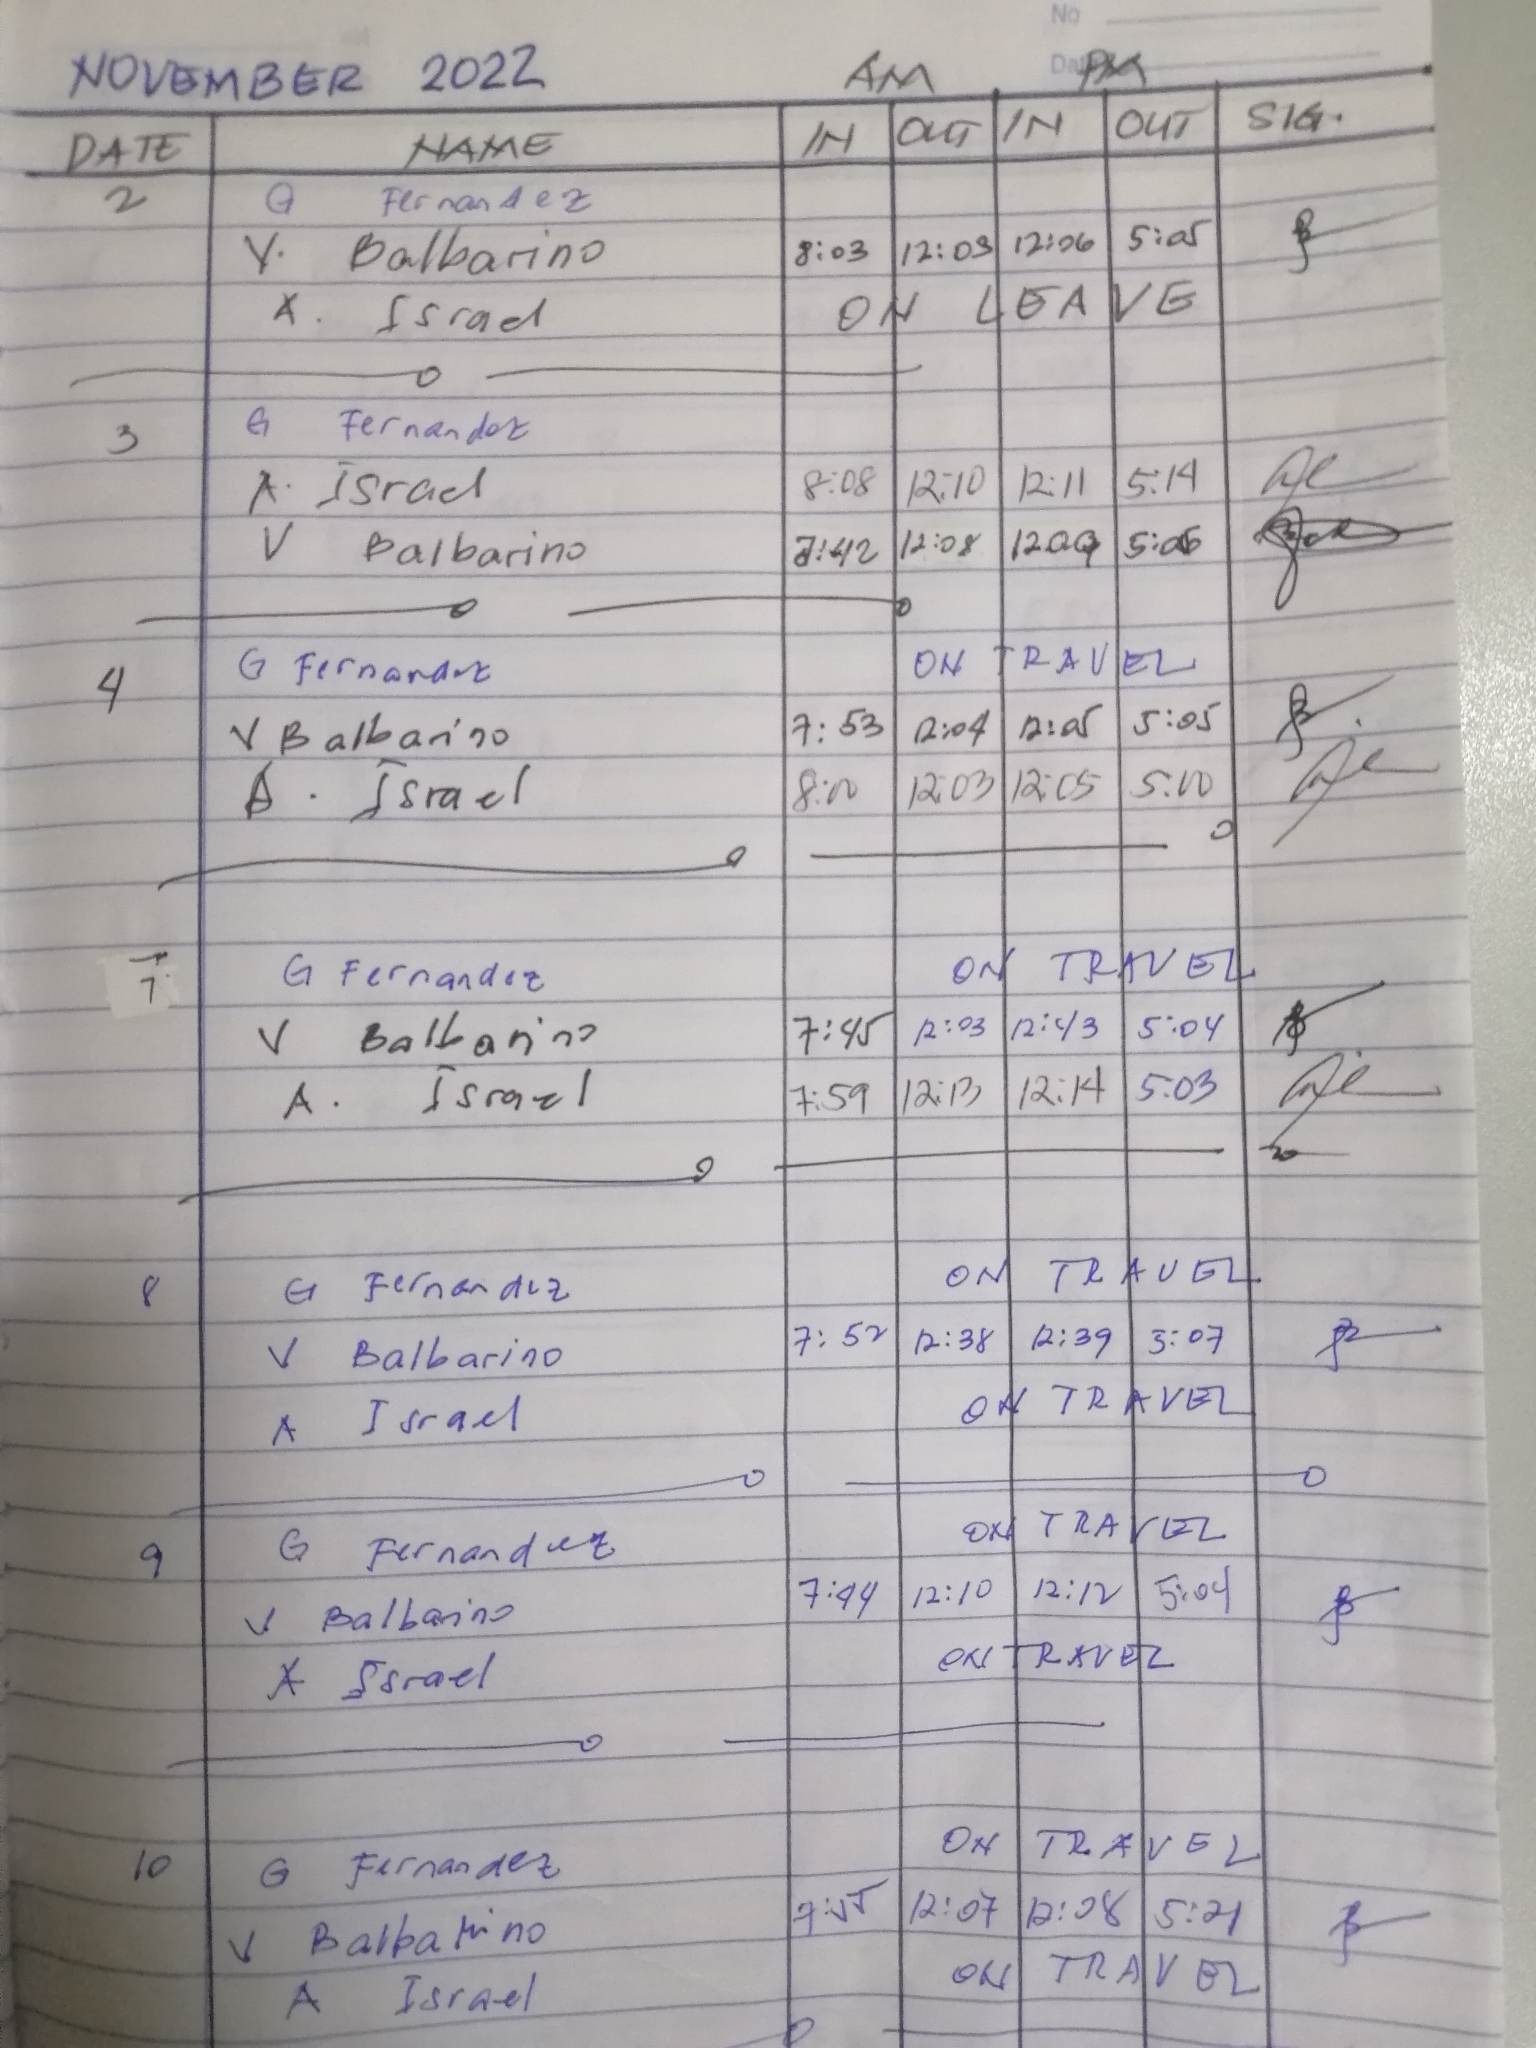 No
Date
NOVEMBER 2022 AM PM
DATE NAME IN OUT IN OUT SIG.
2 G Fernandez
V. Balbarino 8:03 12:03 12:06 5:05
A. Israel ON LEAVE
3 G Fernandez
A. Israel 8:08 12:10 12:11 5:14
V Balbarino 7:42 12:08 12:09 5:06
4 G Fernandez ON TRAVEL
V Balbarino 7:53 12:04 12:05 5:05
A. Israel 8:00 12:03 12:05 5:00
7 G Fernandez ON TRAVEL
V Balbarino 7:45 12:03 12:43 5:04
A. Israel 7:59 12:13 12:14 5:03
8 G Fernandez ON TRAVEL
V Balbarino 7:52 12:38 12:39 5:07
A Israel ON TRAVEL
9 G Fernandez ON TRAVEL
V Balbarino 7:44 12:10 12:12 5:04
A Israel ON TRAVEL
10 G Fernandez ON TRAVEL
V Balbarino 7:55 12:07 12:08 5:21
A Israel ON TRAVEL